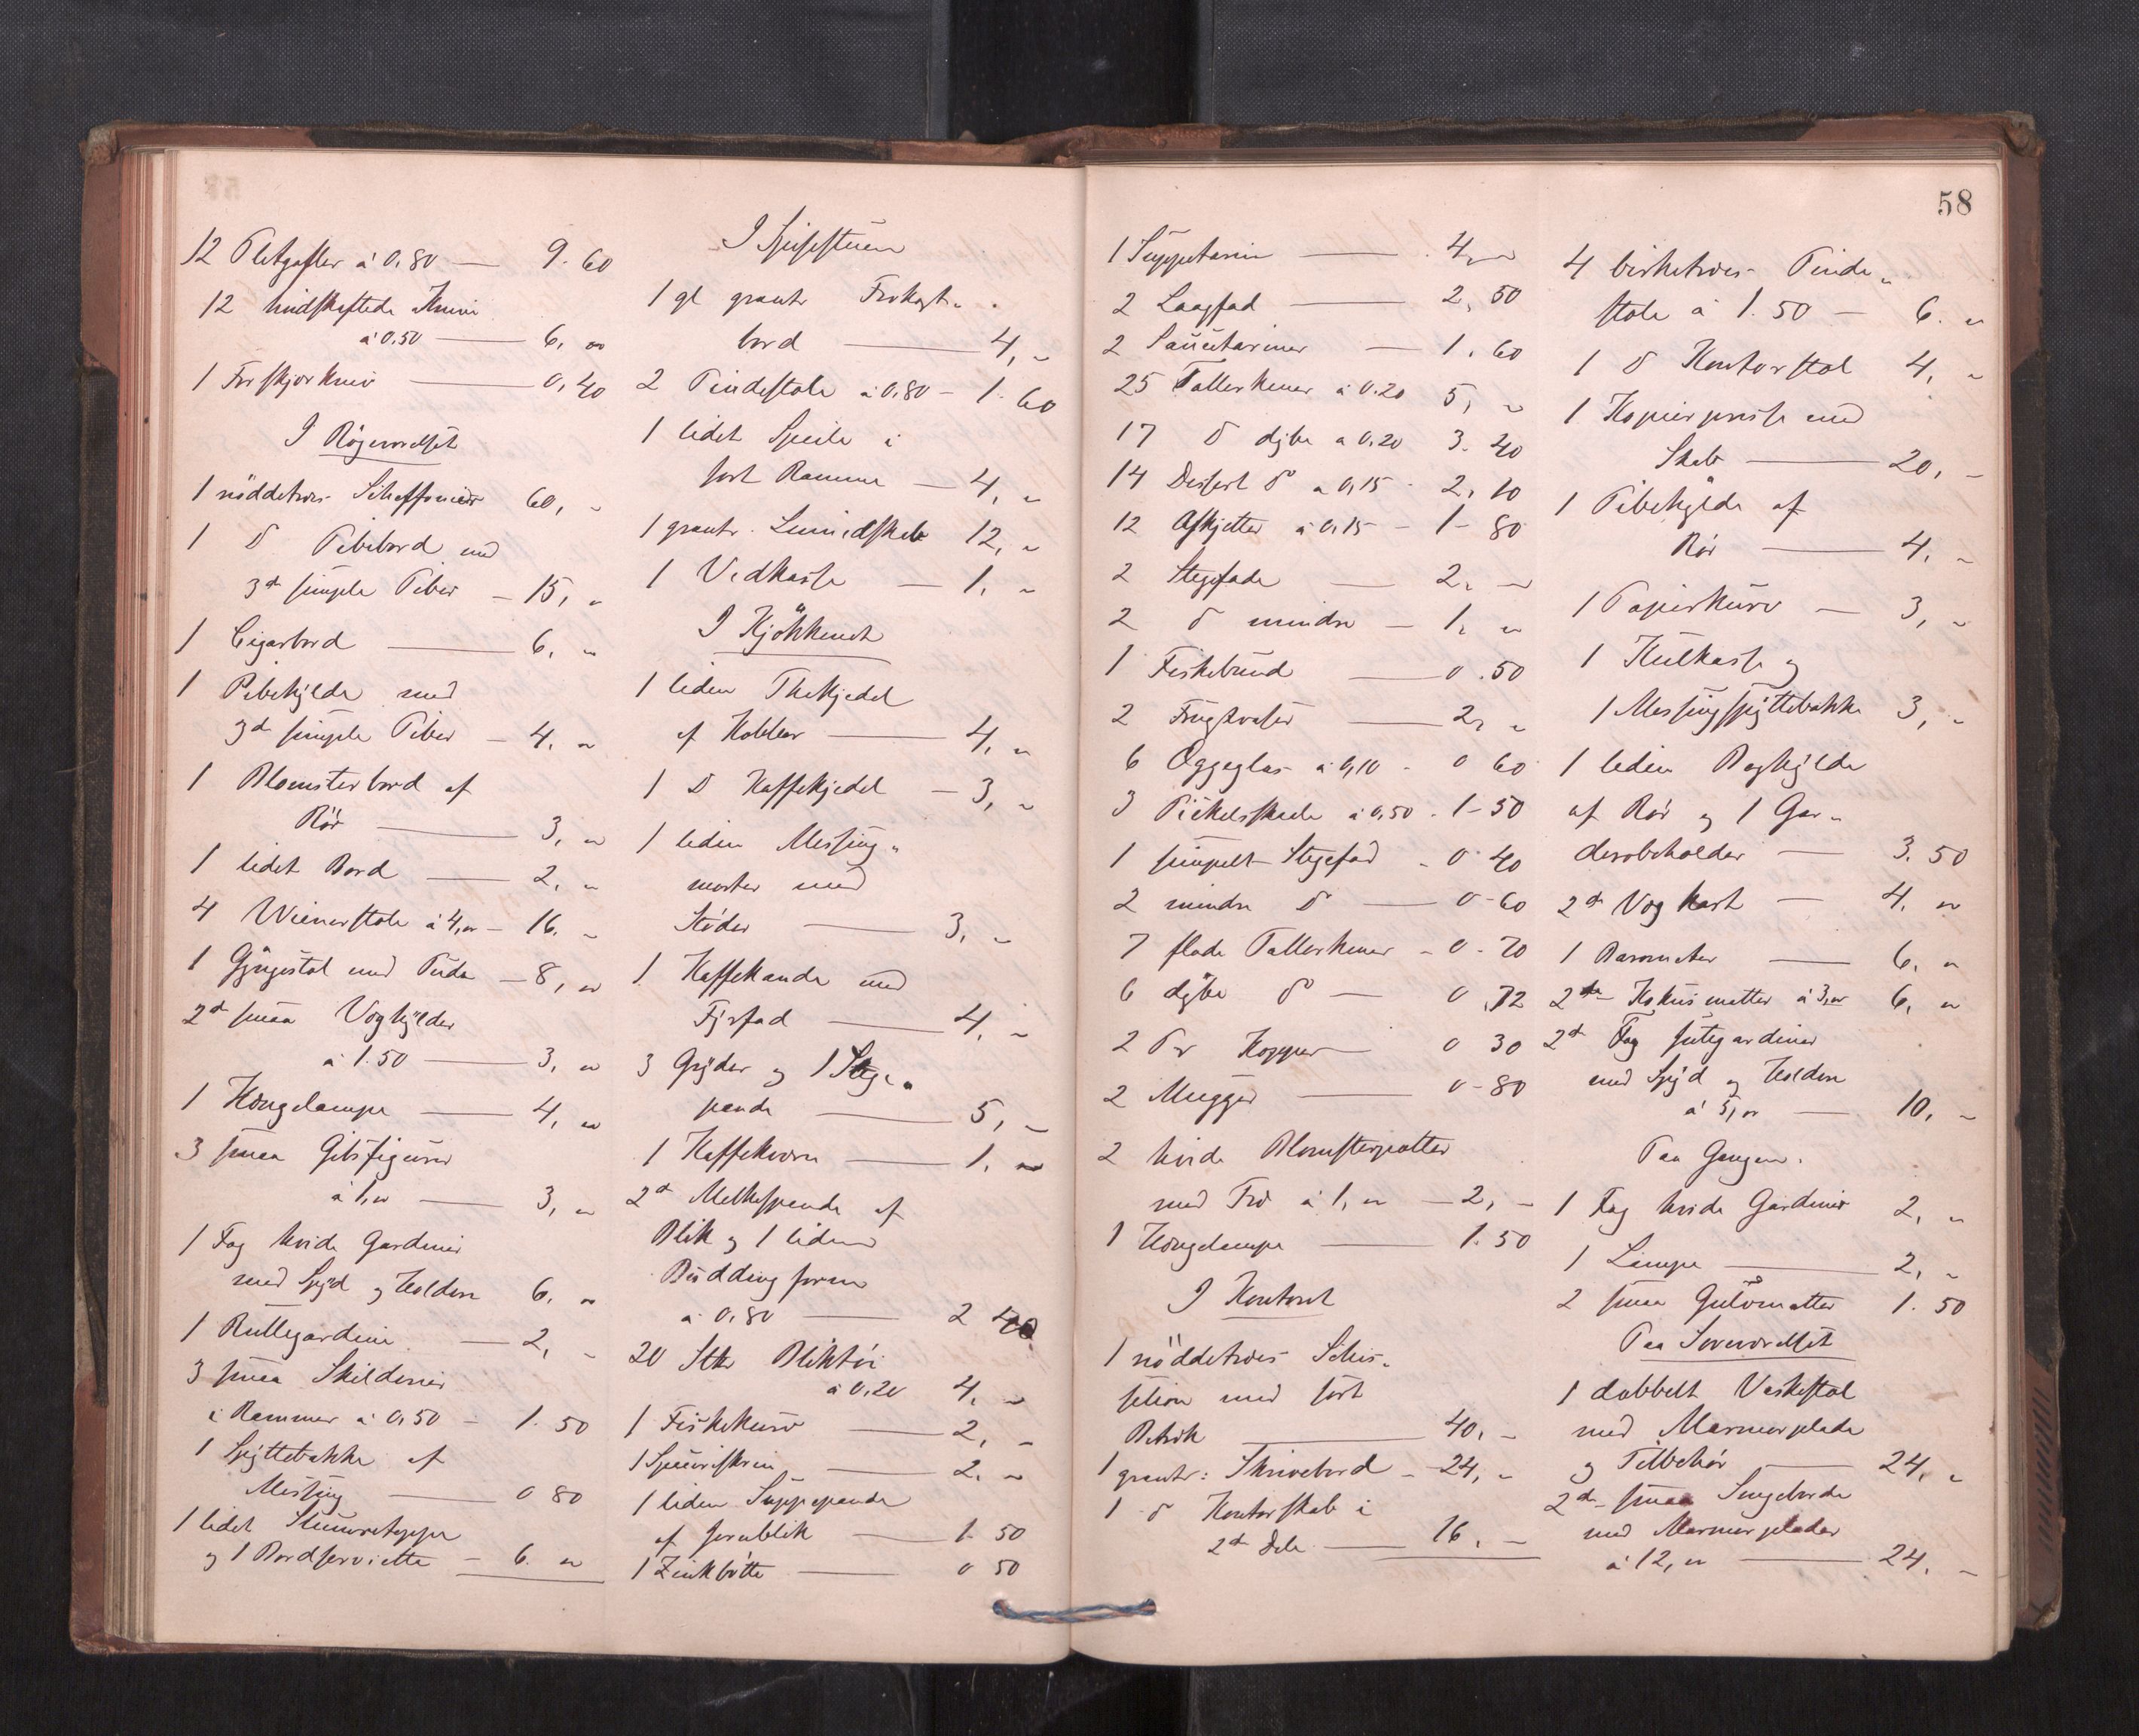 12 Pletgafler à 0,80 — 9. 60
12 hvidskaftede Knive
à 0,50 — 6, "
1 Forskjærkniv — 0,40
I Røgeværelset
1 nöddetræs Schiffonier 60, "
1 do Pibebord med
3de simple Piber — 15, "
1 Cigarbord — 6, "
1 Pibehylde med
3de simple Piber — 4, "
1 Blomsterbord af
Rör — 3, "
1 lidet Bord — 2, "
4 Wienerstole à 4, " — 16, "
1 Gyngestol med Pude — 8, "
2de smaa Væghylder
à 1.50 — 3, "
1 Hængelampe — 4, "
3 smaa Gibsfigurer
à 1, " — 3, "
1 Fag hvide Gardiner
med Spyd og Holdere 6, "
1 Rullegardin — 2, "
3 smaa Skilderier
i Rammer à 0,50 — 1. 50
1 Spyttebakke af
Messing — 0 80
1 lidet Stuevætæppe
og 1 Bordserviette — 6. "
I Spisestuen
1 gl grantr Frokost-
bord — 4, "
2 Pindestole à 0,80 — 1. 60
1 lidet Speile i
sort Ramme — 4, "
1 grantr. Linnedskab 12, "
1 Vedkasse — 1, "
I Kjökkenet
1 liden Thekjedel
af Kobber — 4, "
1 do Kaffekjedel — 3, "
1 liden Messing-
morter med
Stöder — 3, "
1 Kaffekande med
Fyrfad — 4, "
3 Gryder og 1 Stege-
pande — 5, "
1 Kaffekværn — 1, "
2de Melkespande af
Blik og 1 liden
Buddingform
à 0,80 — 2 40
20 Stkr Bliktöi
à 0,20 4, "
1 Fiskekurv — 2, "
1 — 2, "
1 liden Suppepande
af Jernblik — 1. 50
1 Zinkbötte — 0 50
58
1 Suppeterin — 4, "
2 Laagfad — 2, 50
2 Sauceteriner — 1, 60
25 Tallerkener à 0.20 5, "
17 do dybe a 0,20 3. 40
14 Dessert do a 0,15 2, 10
12 Assjetter à 0,15 — 1 - 80
2 Stegefade — 2, "
2 do mindre — 1, "
1 Fiskebund — 0.50
2 Frugtvaser — 2, "
6 Æggeglas à 0,10 — 0 60
3 Pickelsskaale à 0,50 - 1-50
1 simpelt Stegefad — 0 40
2 mindre do — 0-60
7 flade Tallerkener — 0-70
6 dybe do — 0,72
2 Pr Kopper — 0 30
2 Mugger — 0-80
2 hvide Blomsterpotter
med Fod à 1, " — 2, "
1 Hængelampe — 1.50
I Kontoret
1 nöddetræs Schæs-
selion med sort
Betræk — 40, "
1 grantr: Skrivebord — 24, "
1 do Kontorskab i
2de Dele — 16, "
4 birketræs Pinde-
stole à 1.50 — 6. "
1 do Kontorstol 4, "
1 Kopierpresse med
Skab — 20, "
1 Pibehylde af
Rör — 4, "
1 Papirkurv — 3, "
1 Kulkasse og
1 Messingspyttebakke 3, "
1 liden Boghylde
af Rör og 1 Gar-
derobeholder — 3. 50
2de Vægkart — 4, "
1 Barometer — 6, "
2de Kokusmatter à 3, " 6, "
2de Fag Jutegardiner
med Spyd og Holdere
à 5, " — 10, "
Paa Gangen.
1 Fag hvide Gardiner 2, "
1 Lampe — 2, "
2 smaa Gulvmatter 1. 50
Paa Soveværelset
1 dobbelt Vaskestol
med Marmorplade
og Tilbehör — 24, "
2de smaa Sengeborde
med Marmorplader
à 12, " — 24, "